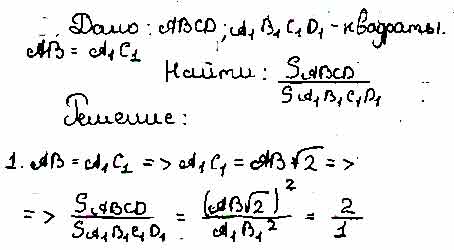 Дано: ABCD; A₁B₁C₁D₁ - квадраты.
AB = A₁C₁
Найти: S_ABCD / S_A₁B₁C₁D₁
Решение:
1. AB = A₁C₁ => A₁C₁ = AB√2 =>
=> S_ABCD / S_A₁B₁C₁D₁ = (AB√2)² / A₁B₁² = 2/1